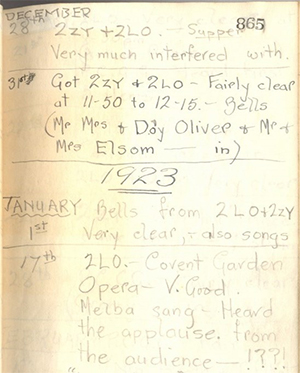 DECEMBER
865
28th 2ZY + 2LO. Supper
Very much interfered with.
31st Got 2ZY + 2LO – Fairly clear
at 11-50 to 12-15. – Bells
(Mr Mrs + Day Oliver + Mr +
Mrs Elsom — in)
1923
JANUARY Bells from 2LO+2ZY
1st Very clear, – also songs
17th 2LO. – Covent Garden
Opera – V. Good.
Melba sang – Heard
the applause. from
the audience — !??!